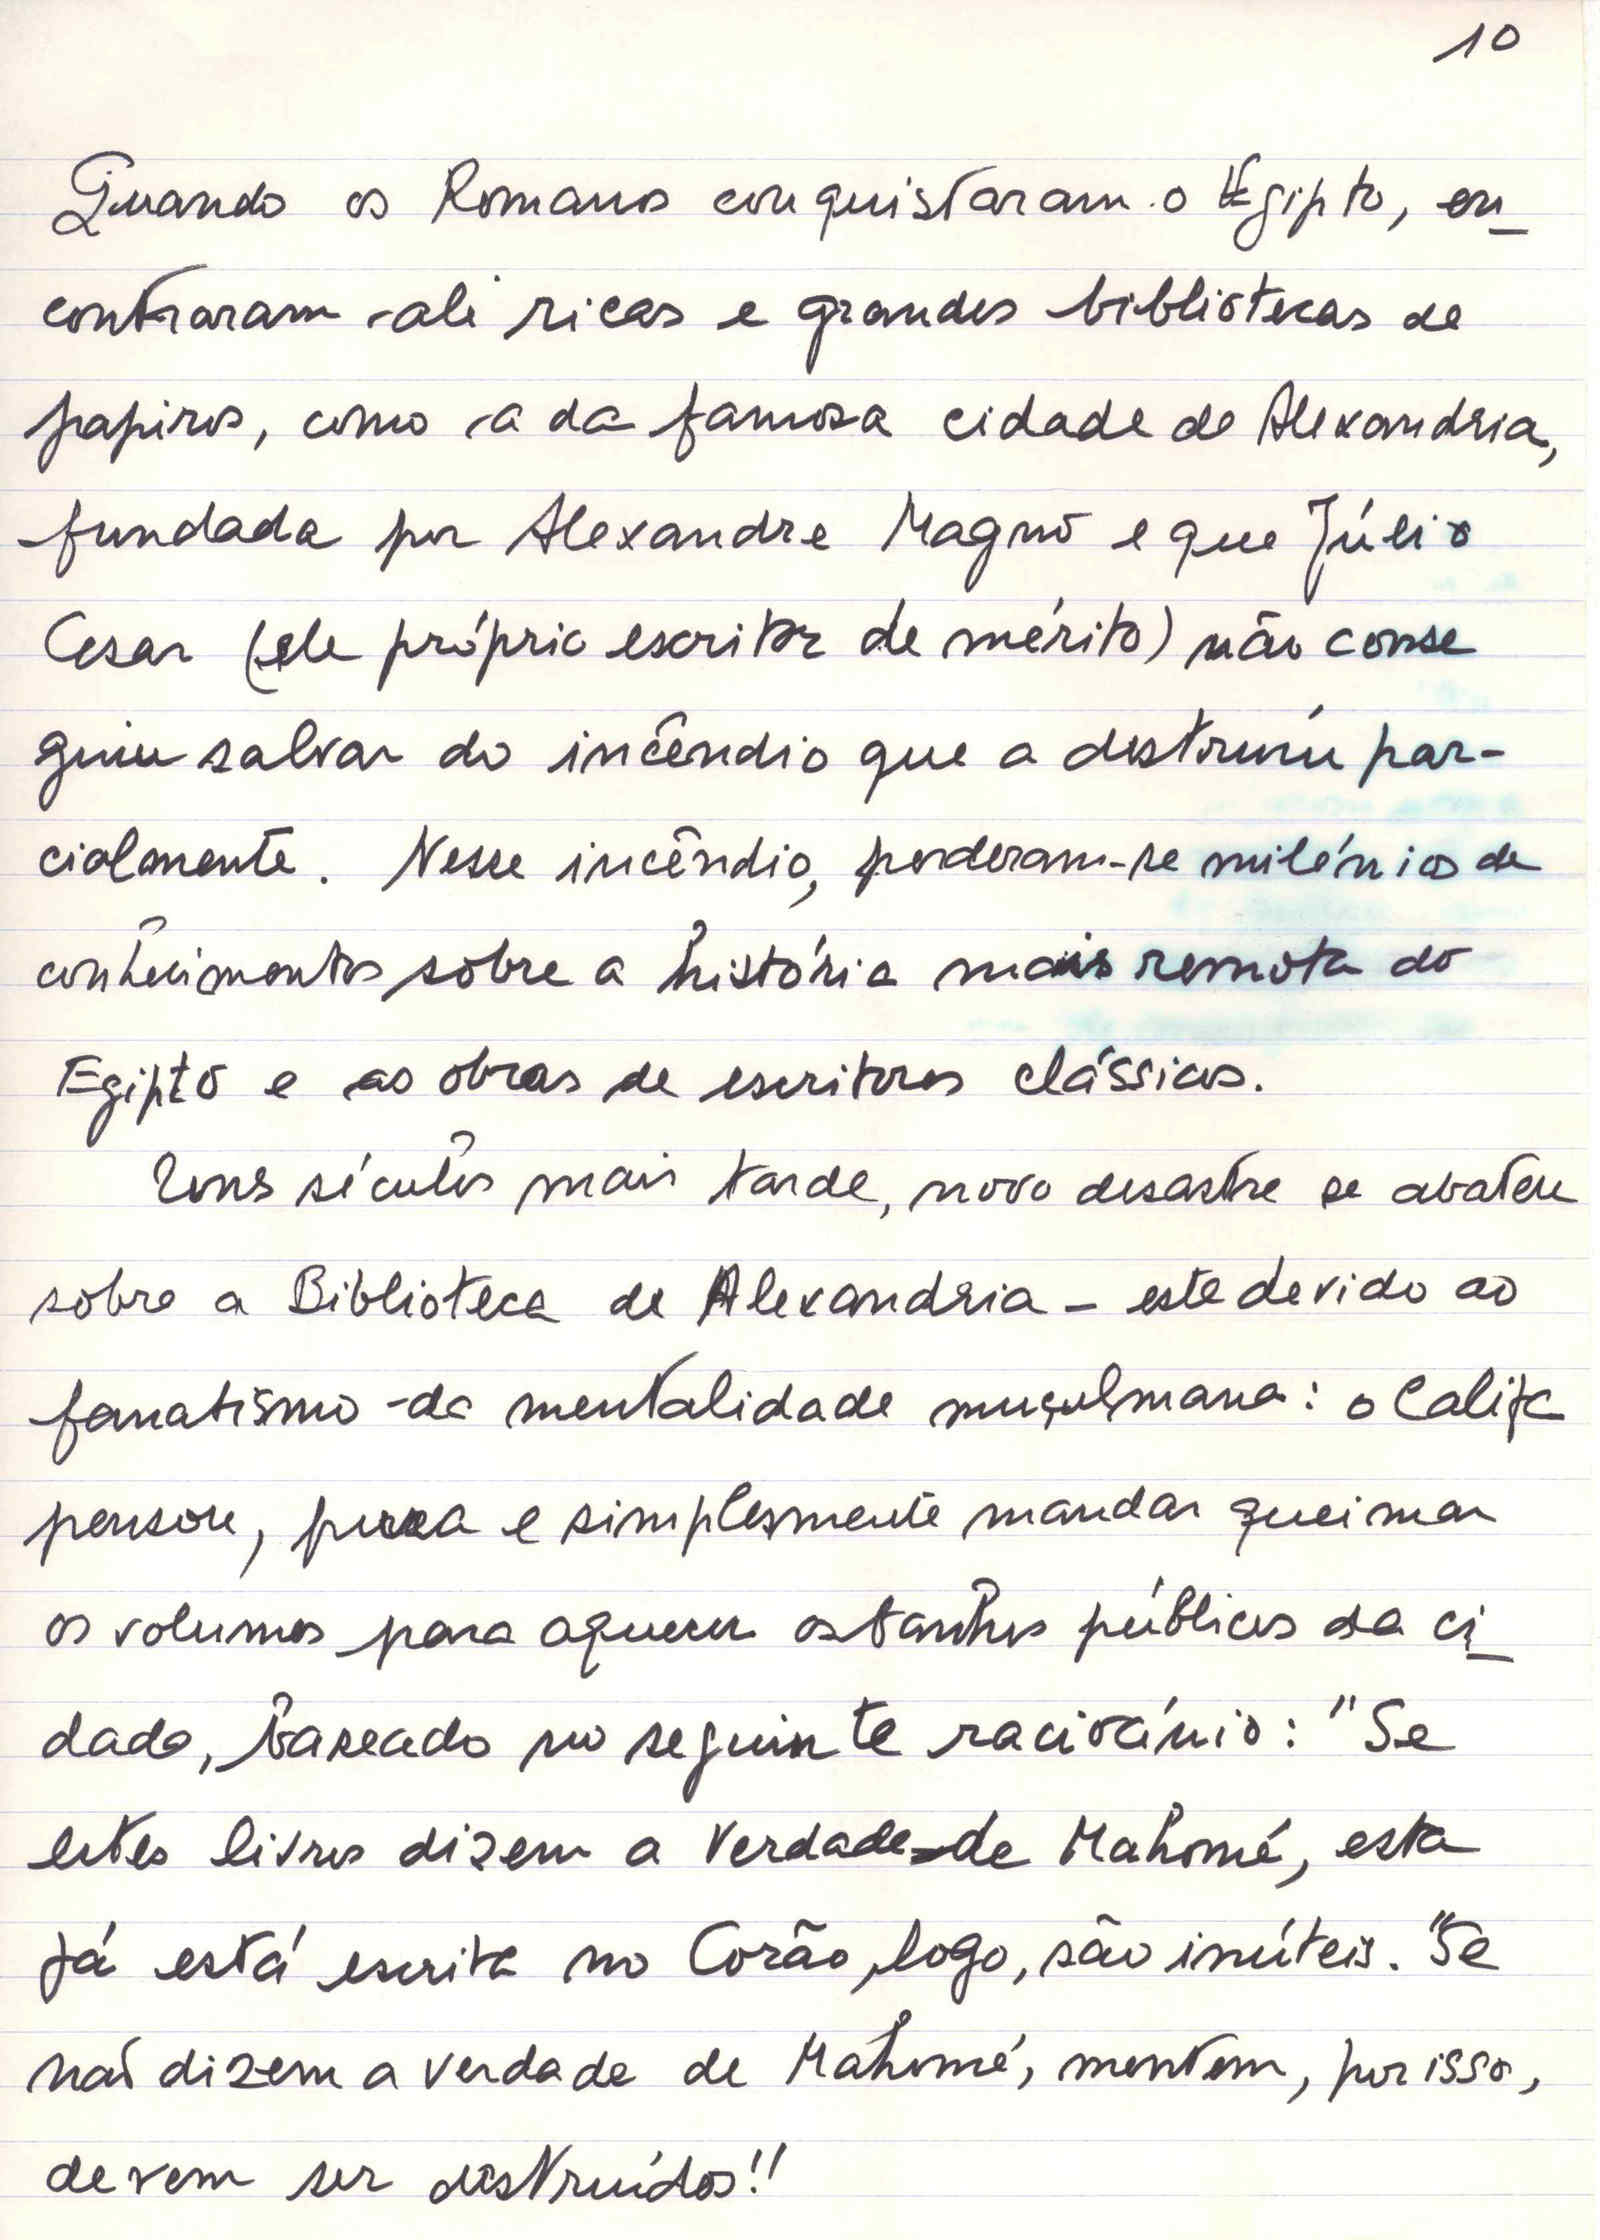 10
Quando os Romanos conquistaram o Egipto, en_
contraram ali ricas e grandes bibliotecas de
papiros, como a da famosa cidade de Alexandria,
fundada por Alexandre Magno e que Júlio
Cesar (ele próprio escritor de mérito) não conse
guiu salvar do incêndio que a destruíu par-
cialmente. Nesse incêndio, perderam-se milénios de
conhecimentos sobre a história mais remota do
Egipto e as obras de escritores clássicos.
Uns séculos mais tarde, novo desastre se abateu
sobre a Biblioteca de Alexandria - este devido ao
fanatismo da mentalidade muçulmana: o Califa
pensou, pura e simplesmente mandar queimar
os volumes para aquecer os banhos públicos da ci_
dade, baseado no seguinte raciocínio: "Se
estes livros dizem a Verdade de Mahomé, esta
já está escrita no Corão, logo, são inúteis. "Se
não dizem a verdade de Mahomé, mentem, por isso,
devem ser destruídos!!